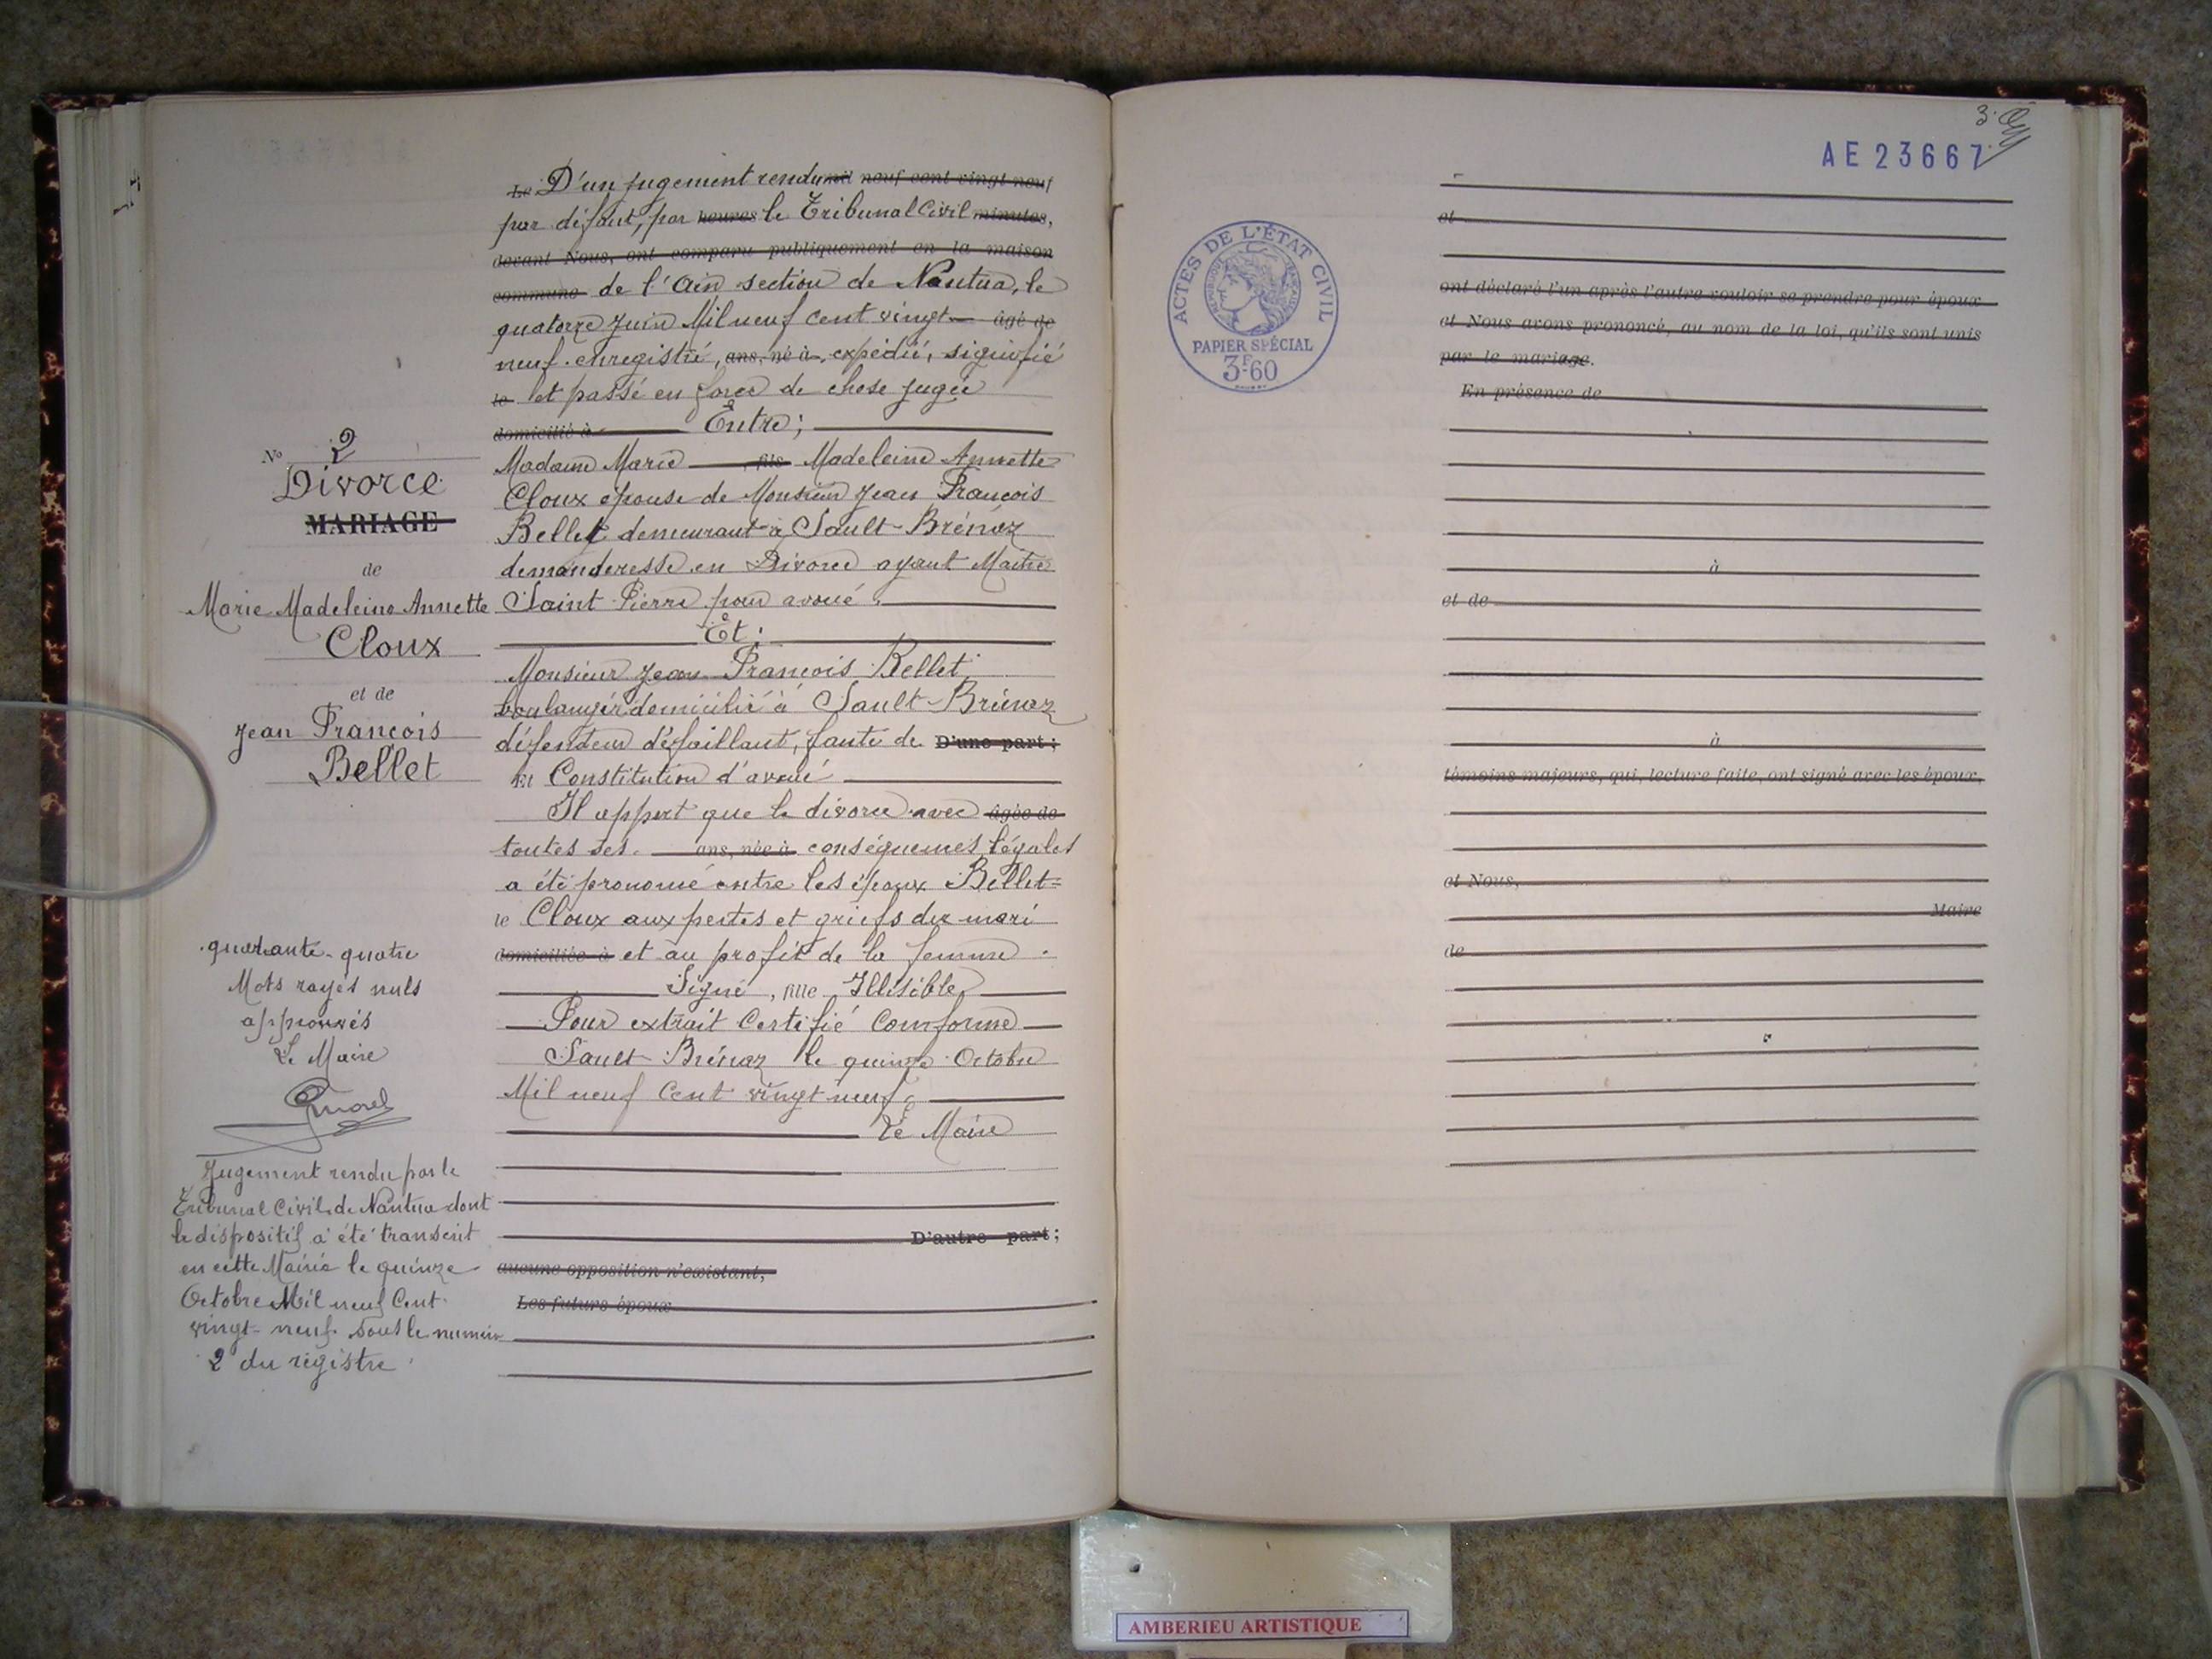 N° 2
Divorce
MARIAGE
de
Marie Madeleine Annette
Cloux
et de
Jean François
Bellet
quarante-quatre
Mots rayés nuls
approuvés
Le Maire
Jugement rendu par le
Tribunal Civil de Nantua dont
le dispositif a été transcrit
en cette Mairie le quinze
Octobre Mil neuf Cent
vingt-neuf sous le numéro
2 du régistre
Le D'un jugement rendu mil neuf cent vingt neuf
par défaut, par heures le Tribunal Civil minutes,
devant Nous, ont comparu publiquement en la maison
commune de l'Ain section de Nantua, le
quatorze Juin Mil neuf cent vingt âgé de
neuf enregistré, ans, né à, expédié, signifié
le et passé en force de chose jugée
domicilié à Entre;
Madame Marie fils Madeleine Annette
Cloux épouse de Monsieur Jean François
Bellet demeurant à Sault-Brénaz
demanderesse en Divorce ayant Maître
Saint-Pierre pour avoué.
Et:
Monsieur Jean François Bellet
boulanger domicilié à Sault-Brénaz
défendeur défaillant, faute de D'une part;
Et Constitution d'avoué
Il appert que le divorce avec âgée de
toutes ses ans, née à conséquences légales
a été prononcé entre les époux Bellet=
le Cloux aux pertes et griefs du mari
domiciliée à et au profit de la femme.
Signé, fille Illisible
Pour extrait Certifié Conforme
Sault-Brénaz le quinze Octobre
Mil neuf Cent vingt neuf
Le Maire
D'autre part;
aucune opposition n'existant,
Les futurs époux
3.
AE 23667
ACTES DE L'ÉTAT CIVIL
RÉPUBLIQUE FRANÇAISE
PAPIER SPÉCIAL
3F60
et
ont déclaré l'un après l'autre vouloir se prendre pour époux
et Nous avons prononcé, au nom de la loi, qu'ils sont unis
par le mariage.
En présence de
à
et de
à
témoins majeurs, qui, lecture faite, ont signé avec les époux,
et Nous,
Maire
de
AMBERIEU ARTISTIQUE